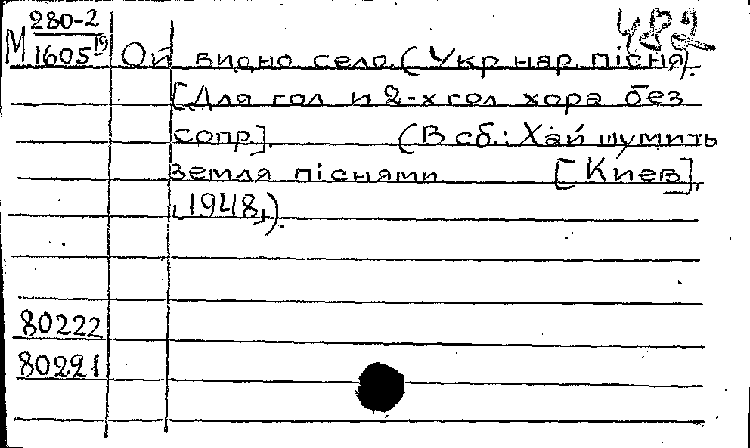 482
М 280-2
1605 19 Ой видно село. (Укр нар. пісня).
[Для гол и 2-х гол хора без
сопр]. (В сб.: Хай шумить
земля піснями [Киев],
1948,).
80222
80221